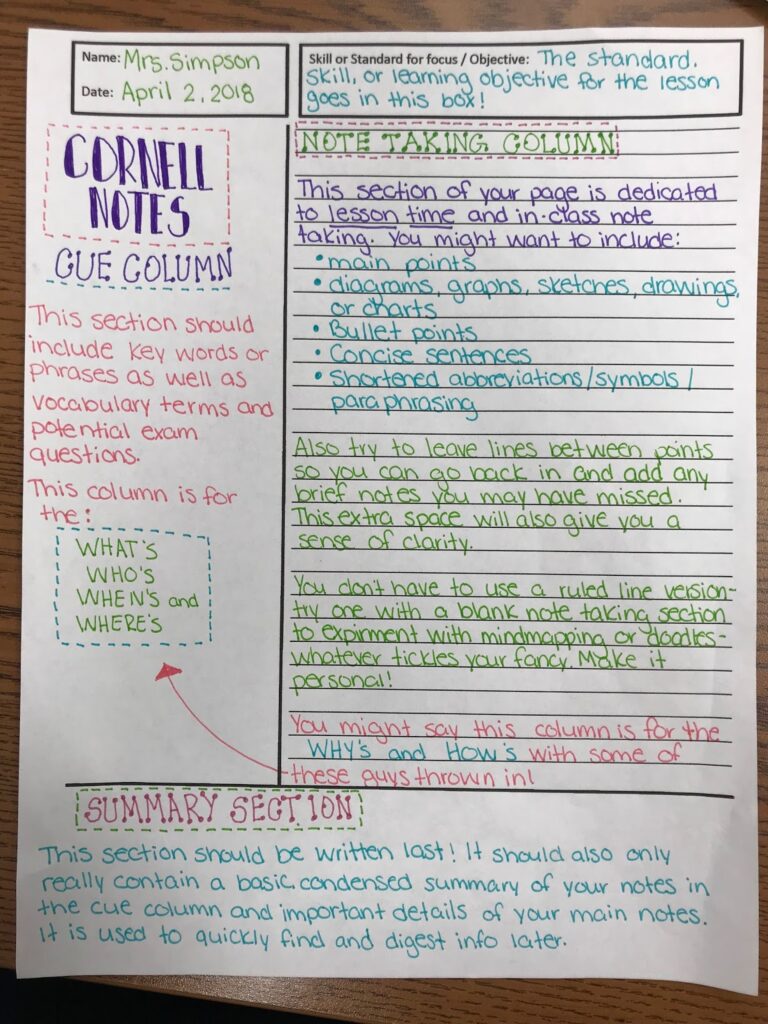 Name: Mrs. Simpson
Date: April 2, 2018
Skill or Standard for focus / Objective: The standard,
skill, or learning objective for the lesson
goes in this box!
CORNELL
NOTES
CUE COLUMN
This section should
include key words or
phrases as well as
vocabulary terms and
potential exam
questions.
This column is for
the:
WHAT'S
WHO'S
WHEN'S and
WHERE'S
NOTE TAKING COLUMN
This section of your page is dedicated
to lesson time and in-class note
taking. You might want to include:
• main points
• diagrams, graphs, sketches, drawings,
or charts
• Bullet points
• Concise sentences
• Shortened abbreviations/symbols/
paraphrasing
Also try to leave lines between points
so you can go back in and add any
brief notes you may have missed.
This extra space will also give you a
sense of clarity.
You don't have to use a ruled line version-
try one with a blank note taking section
to expirment with mindmapping or doodles-
whatever tickles your fancy. Make it
personal!
You might say this column is for the
WHY'S and HOW'S with some of
these guys thrown in!
SUMMARY SECTION
This section should be written last! It should also only
really contain a basic, condensed summary of your notes in
the cue column and important details of your main notes.
It is used to quickly find and digest info later.